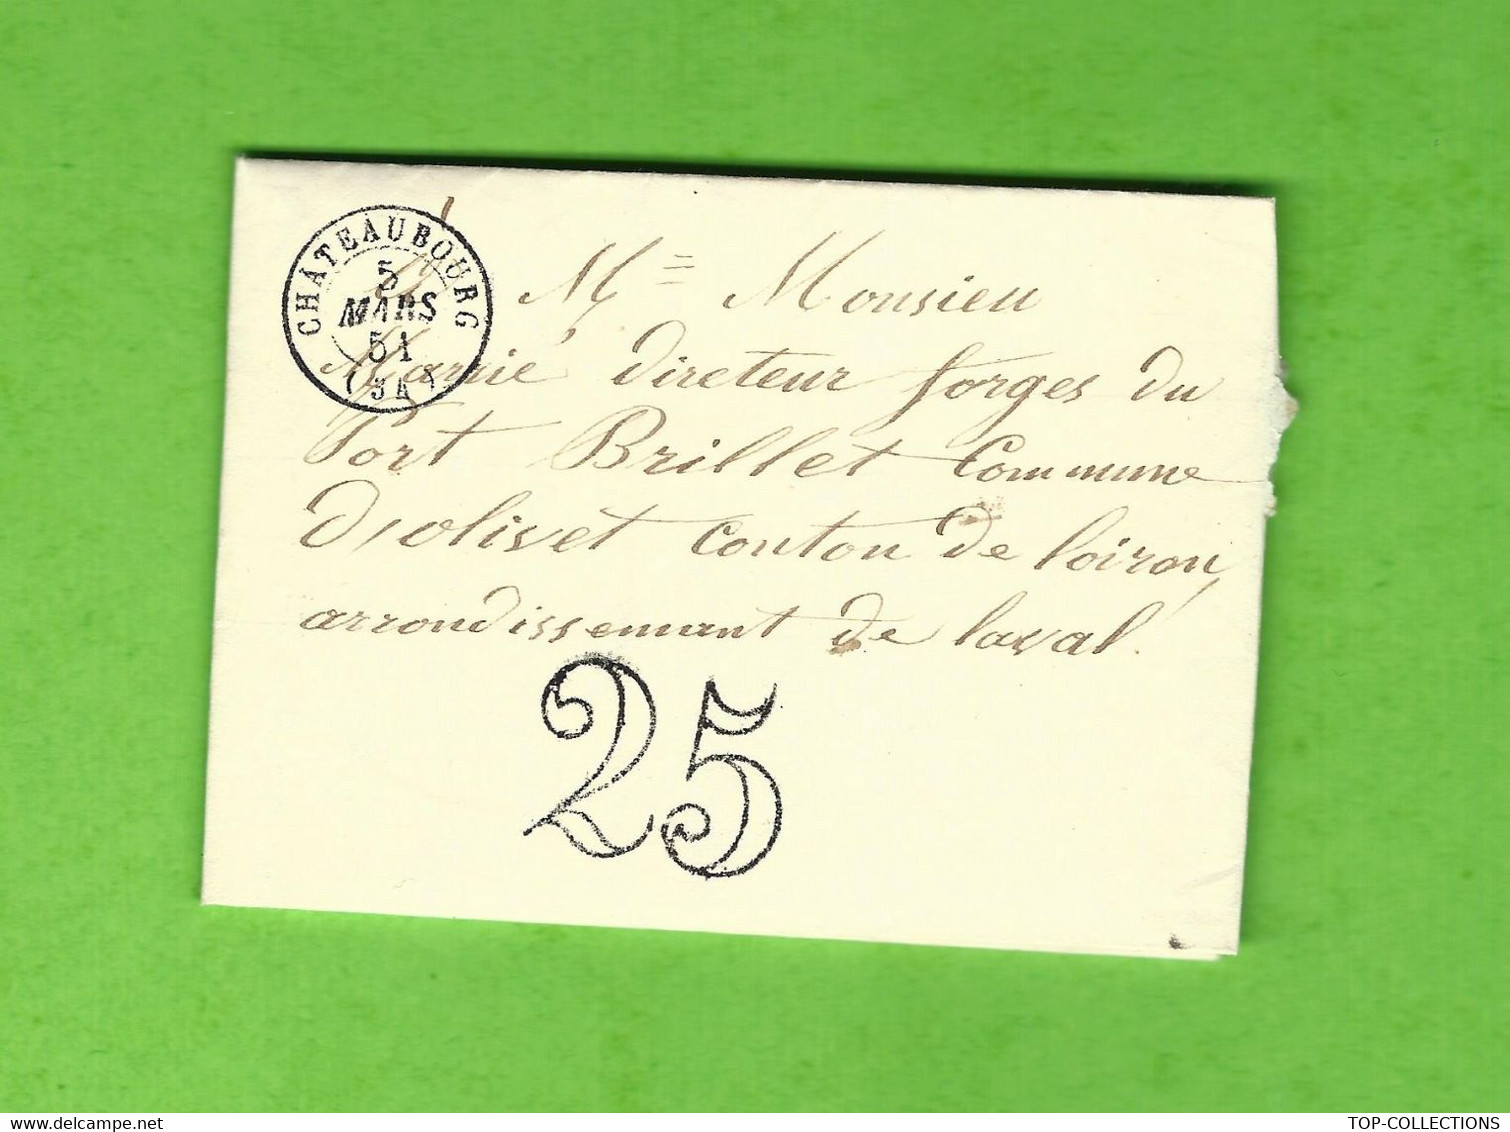 CHATEAUBOURG
5
MARS
51
(34)
M. Monsieu
Marrié directeur forges du
Port Brillet Commune
D, olivet conton de loiron,
arrondissemant de laval.
25
delcampe.net
TOP-COLLECTIONS